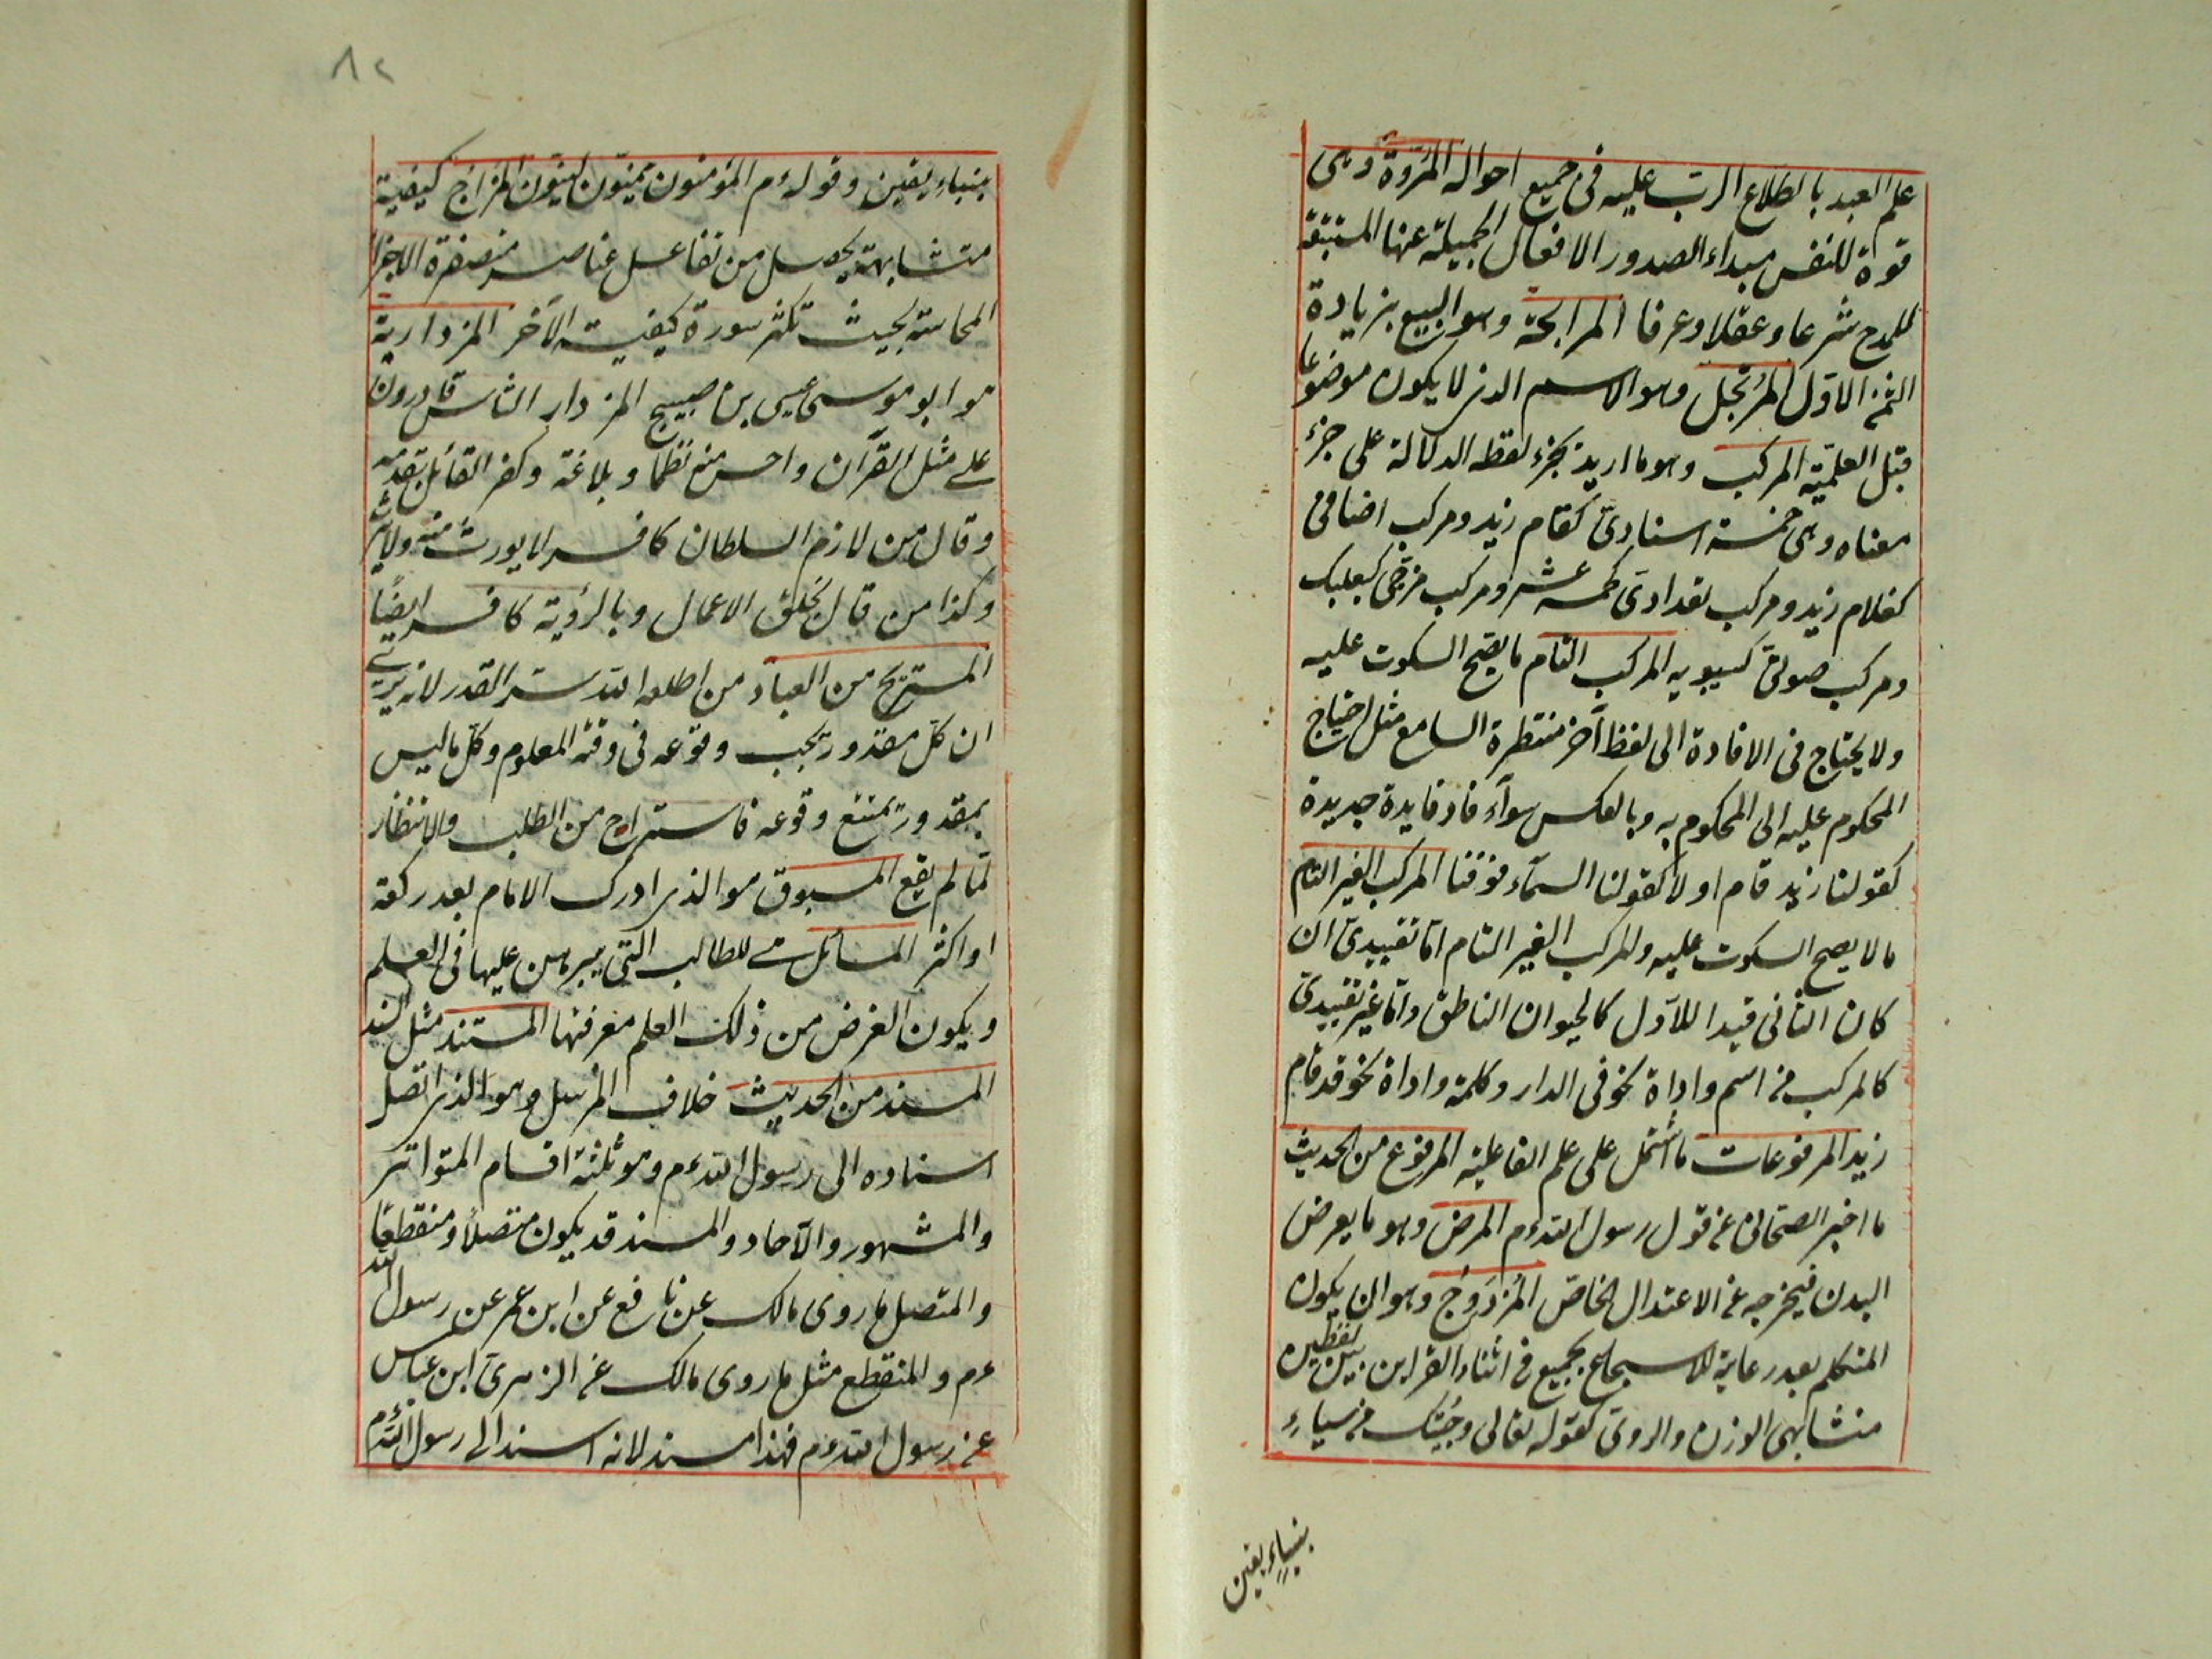 علم العبد باطلاع الرب عليه فى جميع احواله المُرُوّة وهى
قوة للنفس مبداء الصدور الافعال الجميلة عنها المستتبعة
للمدح شرعا وعقلا وعرفا المرابحة وهو البيع بزيادة
الثمن الاوّل المُرتجل وهو الاسم الذى لا يكون موضوعا
قبل العلميّة المركب وهو ما اريد بجزء لفظه الدلالة على جزء
معناه وهى خمسة اسنادىّ كقام زيد ومركب اضافى
كغلام زيد ومركب تعدادىّ كخمسة عشر ومركب مزجى كبعلبك
ومركب صوتىّ كسيبويه المركب التام ما يصح السكوت عليه
ولا يحتاج فى الافادة الى لفظ آخر منتظرة السامع مثل احتياج
المحكوم عليه الى المحكوم به وبالعكس سوآء فاد فايدة جديدة
كقولنا زيد قام او لا كقولنا السمآء فوقنا المركب الغير التام
ما لا يصح السكوت عليه والمركب الغير التام امّا تقييدىّ ان
كان الثانى قيدا للاوّل كالحيوان الناطق وامّا غير تقييدىّ
كالمركب من اسم واداة نحو فى الدار وكلمة واداة نحو قد قام
زيد المرفوعات ما اشتمل على علم الفاعلية المرفوع من الحديث
ما اخبر الصحابى عن قول رسول الله عم المرض وهو ما يعرض
البدن فيخرجه عن الاعتدال الخاصّ المُزدَوج وهو ان يكون
المتكلم بعد رعاية للاسجاع يجمع فى اثناء القراين بين لفظين
متشابهى الوزن والروىّ كقوله تعالى وجئتك من سباءٍ
بنباءٍ يقين
٨٢
بنباءٍ يقين وقوله عم المؤمنون هيّنون ليّنون المزاج كيفية
متشابهة يحصل من تفاعل عناصر منصغرة الاجزاء
المماسة بحيث تكسر سورة كيفية الآخر المزدارية
هو ابو موسى عيسى بن صبيح المزدار الناس قادرون
على مثل القرآن واحسن منه نظما وبلاغة وكفر القائل بقدمه
وقال من لازم السلطان كافر لا يورث منه ولا يرث
وكذا من قال بخلق الاعمال وبالرؤية كافر ايضًا
المستريح من العباد من اطلعه الله سر القدر لانه يرى
ان كلّ مقدور يجب وقوعه فى وقته المعلوم وكلّ ما ليس
بمقدور يمتنع وقوعه فاستراح من الطلب والانتظار
لما لم يقع المسبوق هو الذى ادرك الامام بعد ركعة
او اكثر المسائل هى للطالب التى يبرهن عليها فى العلم
ويكون الغرض من ذلك العلم معرفتها المستند مثل السند
المسند من الحديث خلاف المُرسل وهو الذى اتصل
اسناده الى رسول الله عم وهو ثلثة اقسام المتواتر
والمشهور والآحاد والمسند قد يكون متصلاً ومنقطعًا
والمتصل ما روى مالك عن نافع عن ابن عمر عن رسول الله
عم والمنقطع مثل ما روى مالك عن الزهرىّ ابن عباس
عن رسول الله عم فهذا مسند لانه اسند الى رسول الله عم